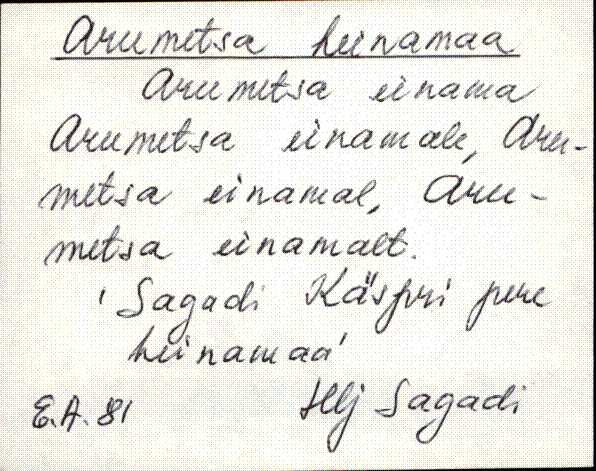 Arumetsa heinamaa
Arumetsa einama
Arumetsa einamale, Aru-
metsa einamal, Aru-
metsa einamalt.
'Sagadi Käspri pere
heinamaa'
E.A. 81 Hlj Sagadi